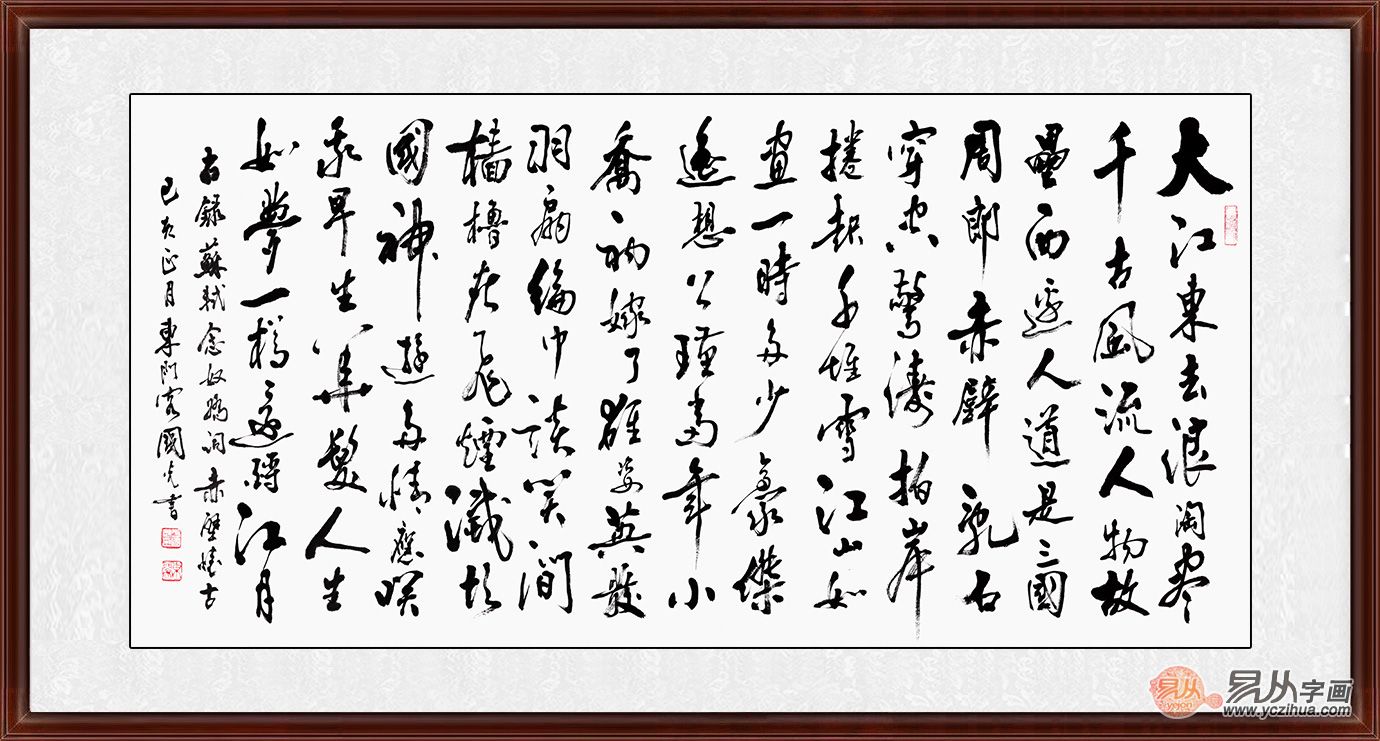 大江東去浪淘尽
千古風流人物故
壘西邊人道是三國
周郎赤壁亂石
穿空驚濤拍岸
捲起千堆雪江山如
畫一時多少豪傑
遙想公瑾當年小
喬初嫁了雄姿英發
羽扇綸巾談笑間
檣櫓灰飛煙滅故
國神遊多情應咲
我早生華髮人生
如夢一樽還酹江月
右錄蘇軾念奴嬌詞赤壁懷古
己亥正月東國光書
易从
yejon
易从字画
www.yczihua.com